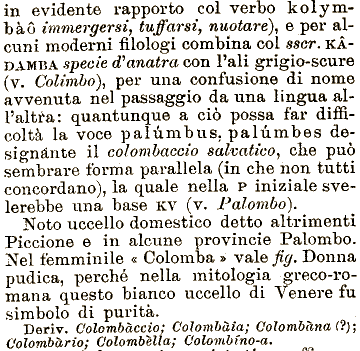 in evidente rapporto col verbo kolym-
bàô immergersi, tuffarsi, nuotare), e per al-
cuni moderni filologi combina col sscr. KÂ-
DAMBA specie d'anatra con l'ali grigio-scure
(v. Colimbo), per una confusione di nome
avvenuta nel passaggio da una lingua al-
l'altra: quantunque a ciò possa far diffi-
coltà la voce palúmbus, palúmbes de-
signante il colombaccio salvatico, che può
sembrare forma parallela (in che non tutti
concordano), la quale nella P iniziale sve-
lerebbe una base KV (v. Palombo).
Noto uccello domestico detto altrimenti
Piccione e in alcune provincie Palombo.
Nel femminile « Colomba » vale fig. Donna
pudica, perché nella mitologia greco-ro-
mana questo bianco uccello di Venere fu
simbolo di purità.
Deriv. Colombàccio; Colombàia; Colombàna (?);
Colombàrio; Colombèlla; Colombíno-a.